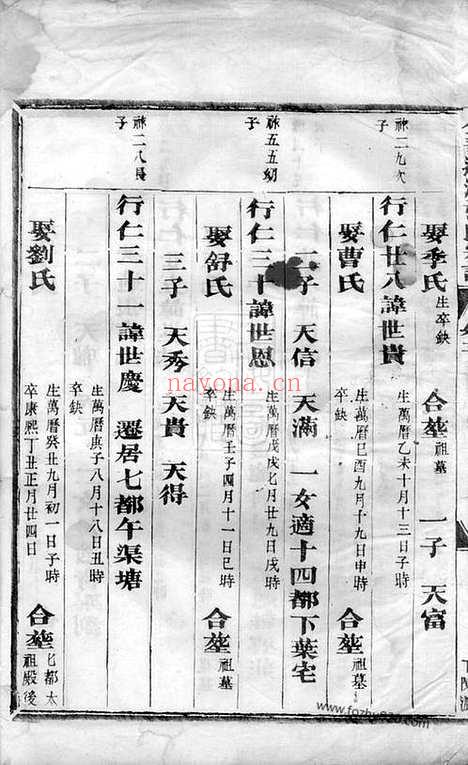 娶季氏 生卒缺 合塋祖墓 一子 天富
祿二九次子
行仁廿八諱世貴 生萬曆乙未十月十三日子時 卒缺
娶曹氏 生萬曆己酉九月十九日申時 卒缺 合塋祖墓
二子 天信 天滿 一女適十四都下葉宅
祿五五幼子
行仁三十諱世恩 生萬曆戊戌七月廿九日戌時 卒缺
娶舒氏 生萬曆壬子四月十一日巳時 卒缺 合塋祖墓
三子 天秀 天貴 天得
祿二八長子
行仁三十一諱世慶 遷居七都午渠塘
生萬曆庚子八月十八日丑時
娶劉氏 生萬曆癸丑九月初一日子時 卒康熙丁丑正月廿四日 合塋七都太祖殿後
nayona.cn
www.fozhu920.com